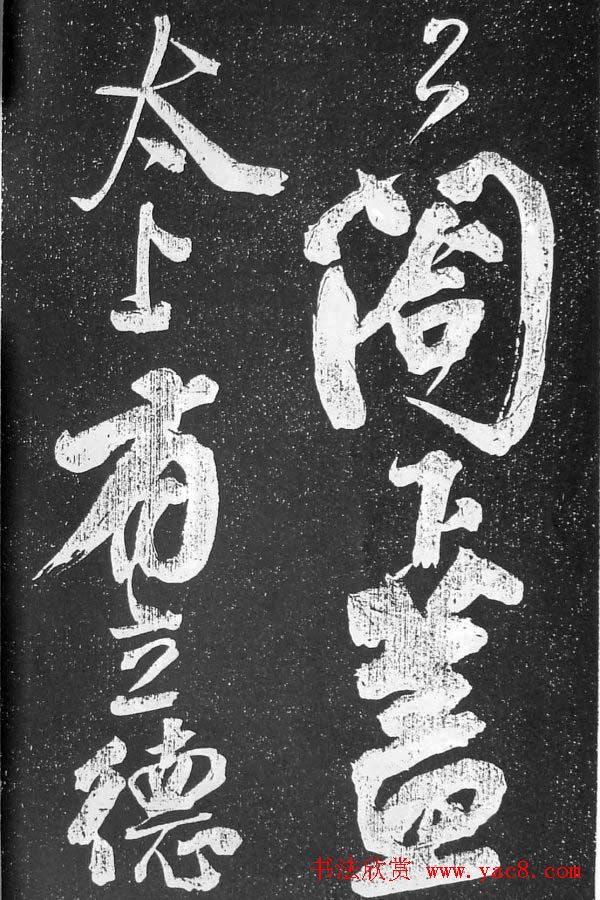 公閤下蓋
太上有立德
书法欣赏 www.yac8.com